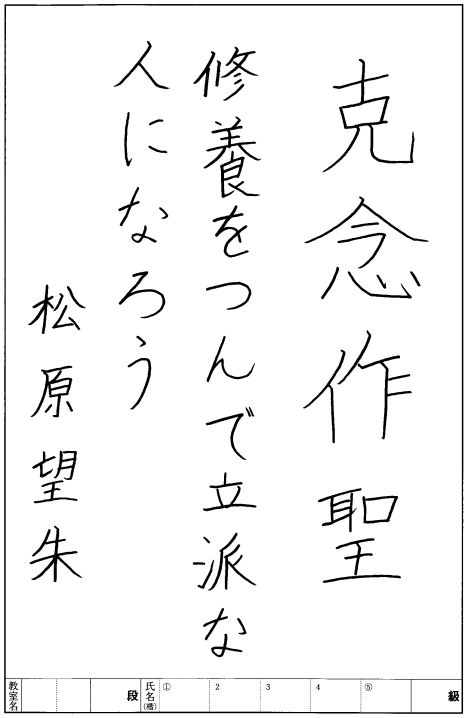 克念作聖
修養をつんで立派な
人になろう
松原望朱
教室名 段 氏名(楷) ① 2 3 4 ⑤ 級